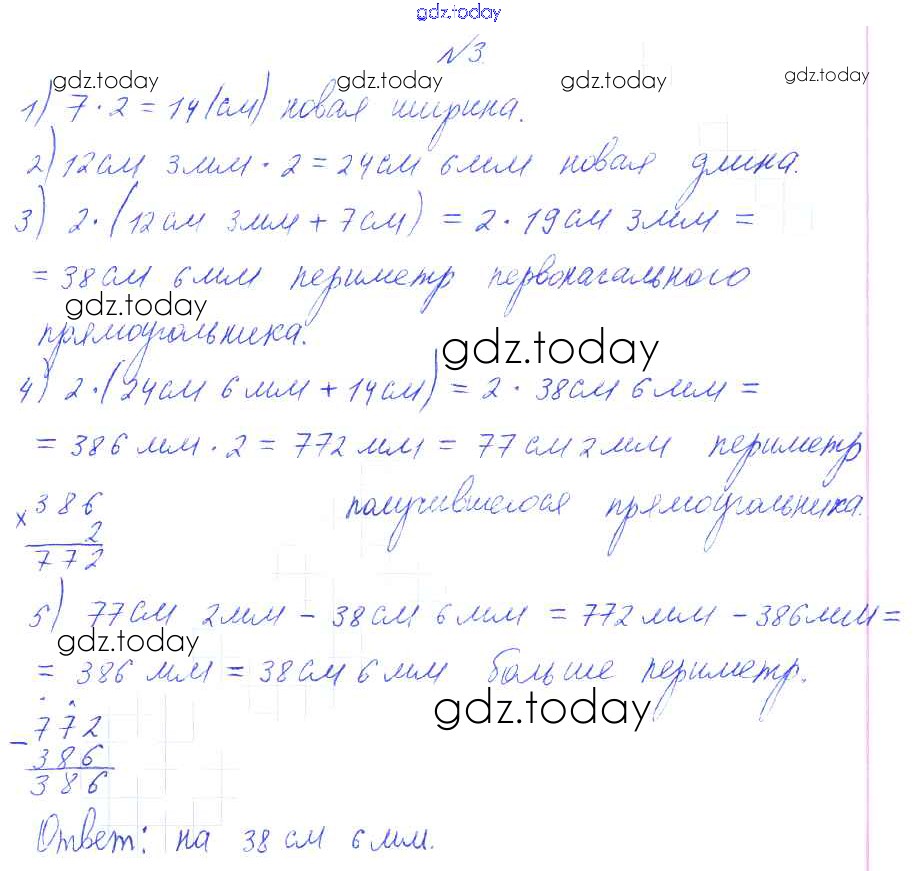 gdz.today
№3.
gdz.today gdz.today gdz.today gdz.today
1) 7 · 2 = 14 (см) новая ширина.
2) 12 см 3 мм · 2 = 24 см 6 мм новая длина.
3) 2 · (12 см 3 мм + 7 см) = 2 · 19 см 3 мм =
= 38 см 6 мм периметр первоначального
gdz.today
прямоугольника.
gdz.today
4) 2 · (24 см 6 мм + 14 см) = 2 · 38 см 6 мм =
= 386 мм · 2 = 772 мм = 77 см 2 мм периметр
× 386 получившегося прямоугольника.
2
772
5) 77 см 2 мм - 38 см 6 мм = 772 мм - 386 мм =
gdz.today
= 386 мм = 38 см 6 мм больше периметр.
gdz.today
- 772
386
386
Ответ: на 38 см 6 мм.